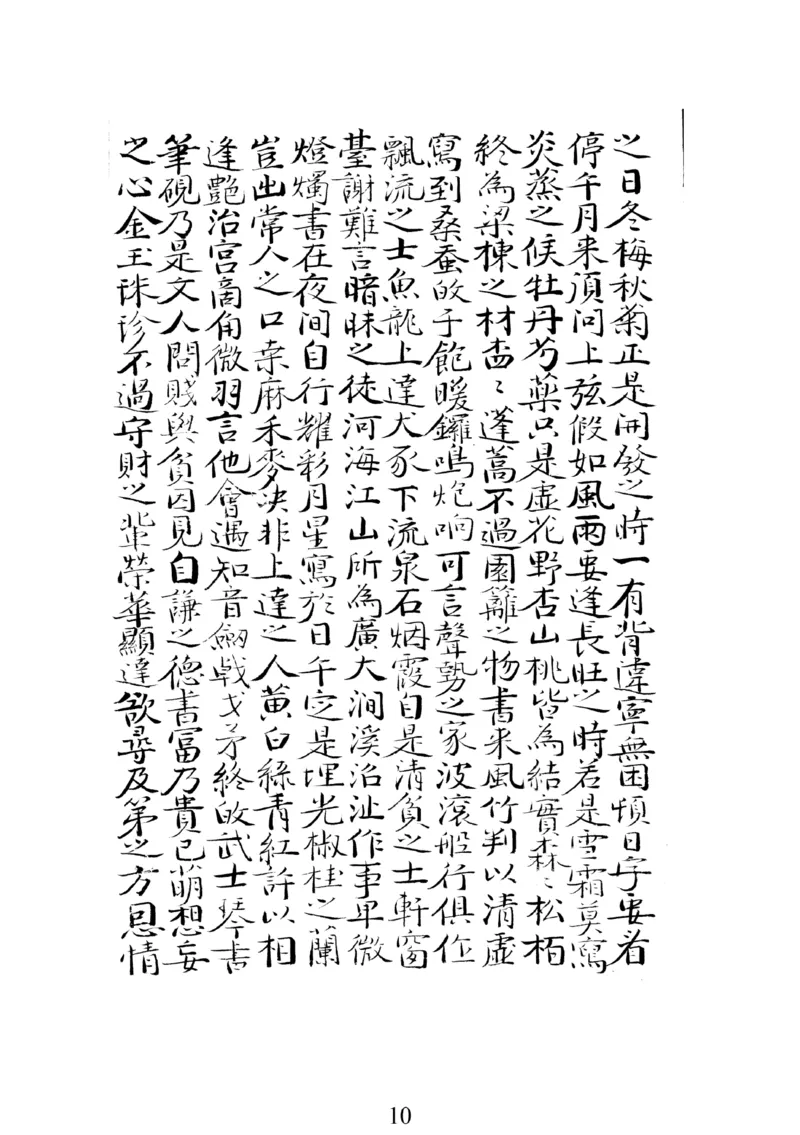 之日冬梅秋菊正是開發之時一有背違寧無困頓日字要看
停午月来須问上弦假如風雨要逢長旺之時若是雪霜莫寫
炎蒸之候牡丹芍藥只是虛花野杏山桃皆為結實森〻松栢
終為梁棟之材盉〻蓬蒿不過園籬之物書来風竹判以清虛
寫到桑蚕的子飽暖鑼鳴炮响可言聲勢之家波滾船行俱作
飄流之士魚龍上達犬豕下流泉石烟霞自是清貧之士軒窗
臺謝難言暗昧之徒河海江山所為廣大澗溪沼沚作事卑微
燈燭書在夜间自行耀彩月星寫於日午定是埋光椒桂之蘭
豈出常人之口桒麻禾麥决非上達之人黃白綠青紅許以相
逢艷冶宮商角徵羽言他會遇知音劒戟戈矛終的武士琴书
筆硯乃是文人問賤與貧因見自謙之德書冨乃貴已萌想妄
之心金玉珠珍不過守財之輩榮華顯達欲尋及第之方恩情
10